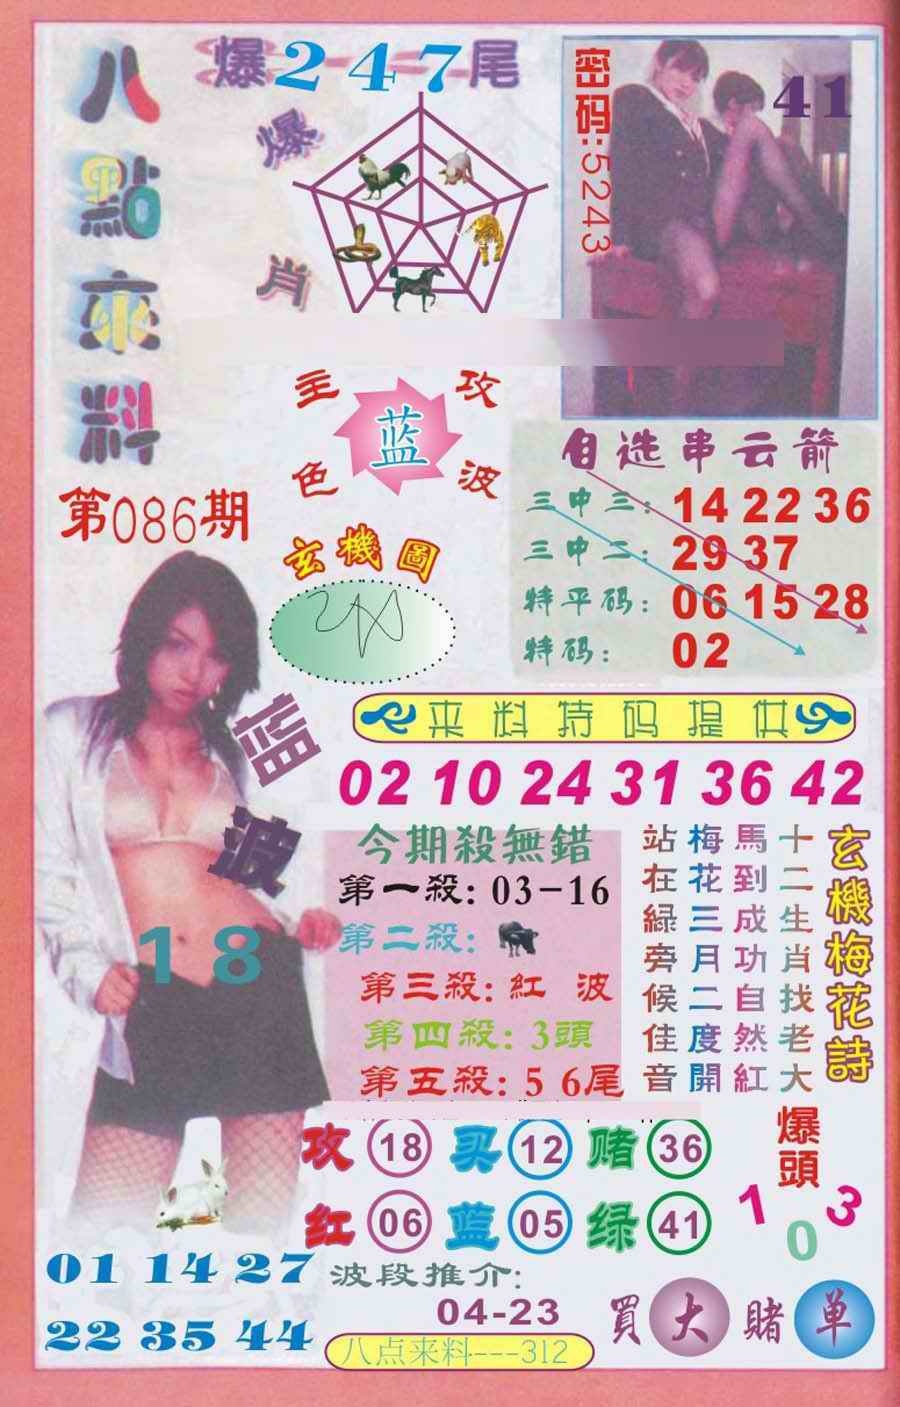 八點來料
爆247尾
爆肖
密码:5243
41
主攻
蓝
色波
第086期
玄機圖
自选串云箭
三中三:142236
三中二:2937
特平码:061528
特码:02
蓝波
18
来料特码提供
021024313642
今期殺無錯
第一殺:03-16
第二殺:
第三殺:紅波
第四殺:3頭
第五殺:56尾
玄機梅花詩
十二生肖找老大
馬到成功自然紅
梅花三月二度開
站在綠旁候佳音
攻18买12赌36
红06蓝05绿41
爆頭
103
011427
223544
波段推介:
04-23
買大賭单
八点来料---312